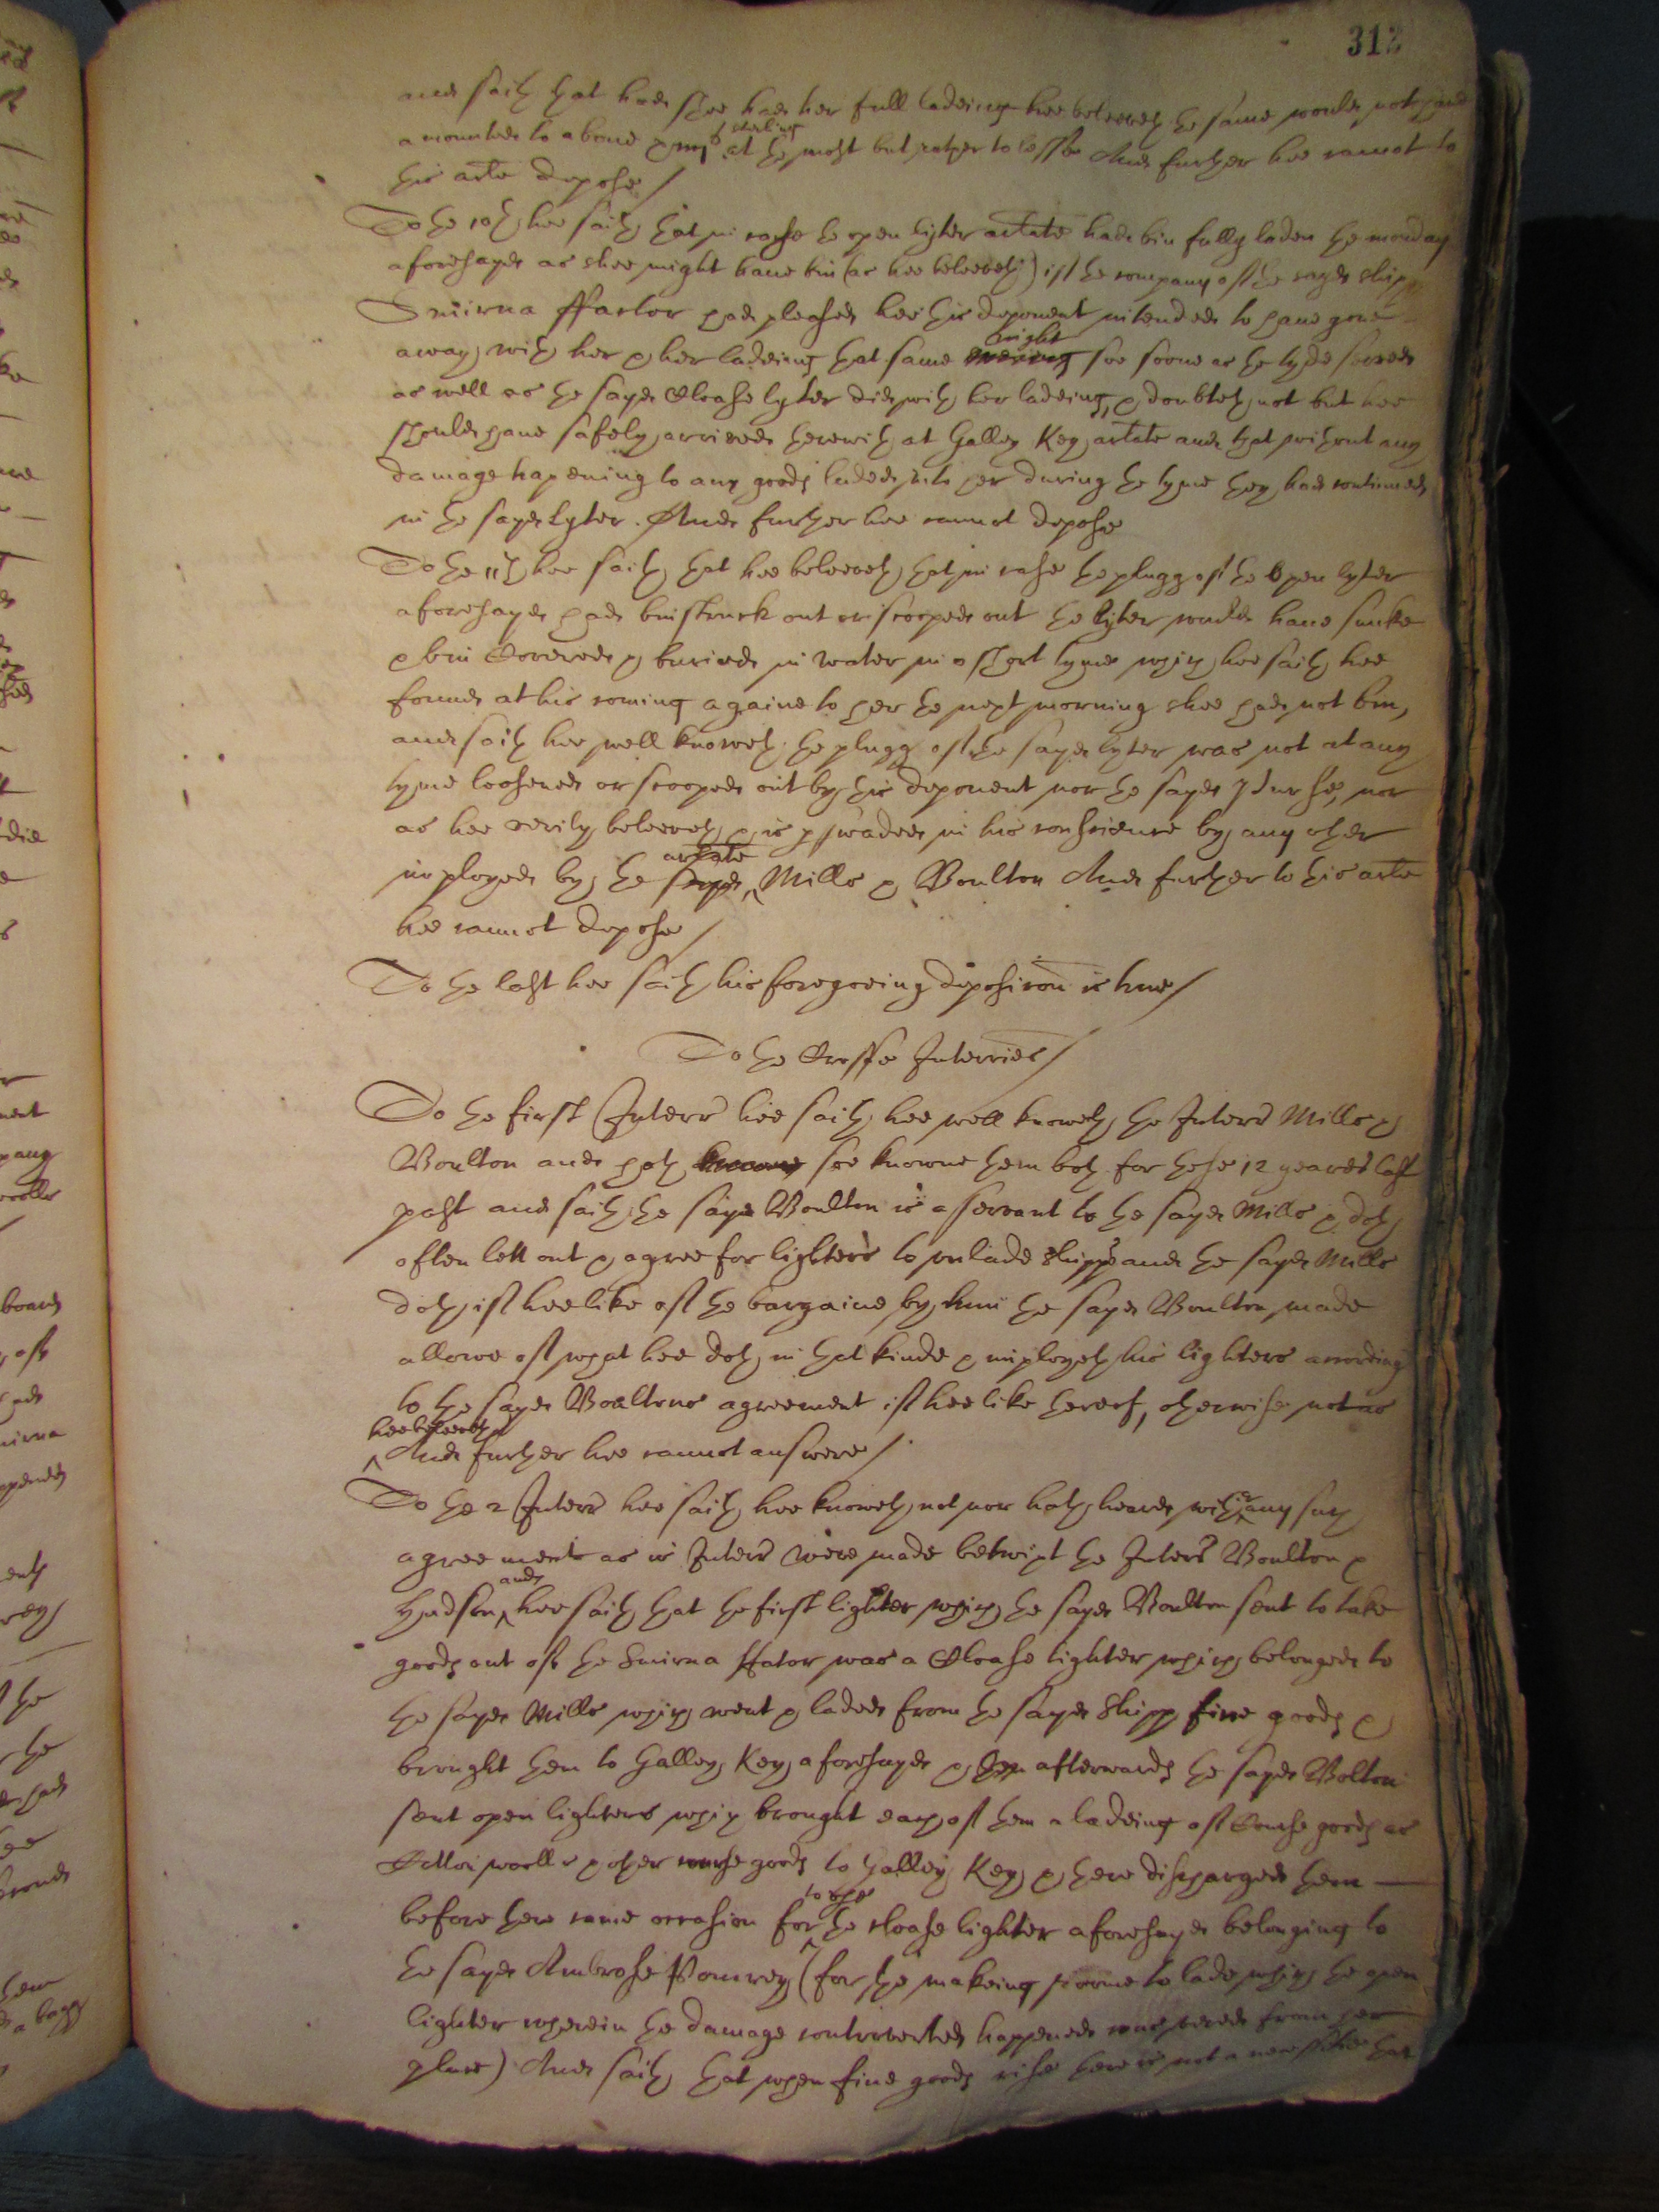 312
and saith that had shee had her full ladeing hee beleeveth the same would not have
amounted to above sterling at the most but rather to lesse And further hee cannot to
this arte depose /
To the 10th hee saith that in case the open lighter arlate had bin fully laden the monday
aforesayd as shee might have bin (as hee beleeveth) if the company of the sayd shipp
Smirna ffactor had pleased hee this deponent intended to have gone
away with her & her ladeing that same evening night soe soone as the tyde served
as well as the sayd Cloase lyter did with her ladeing, & doubteth not but hee
should have safely arrived therewith at Galley Key arlate and that without any
damage hapening to any goods laded into her during the tyme they had continued
in the sayd lyter. And further hee cannot depose
To the 11th hee saith that hee beleeveth that in case the plugg of the open lyter
aforesayd had bin struck out or scooped out the lyter would have sunke
& bin Covered & buried in water in a short tyme which hee saith hee
found at his coming againe to her the next morning shee had not bin,
and saith hee well knoweth the plugg of the sayd lyter was not at any
tyme loosened or scooped out by this deponent nor the sayd nor
as hee verily beleeveth & is pswaded in his conscience by any other
imployed by the sayd arlate Mills & Boulton And further to this arte
hee cannot depose /
To the last hee saith his foregoeing deposicon is true /
To the Crosse Interries /
To the first Interr hee saith hee well knoweth the Interr Mills &
Boulton and hath knowne soe knowne them both for these 12 yeares last
past and saith the sayd Boulton is a servant to the sayd Mills & doth
often lett out & agree for lighters to unlade shipps and the sayd Mills
doth if hee like of the bargaine by him the sayd Boulton made
allowe of what hee doth in that kinde & imployeth his lighters according
to the sayd Boultons agreement if hee like thereof, otherwise not as
hee beleeveth And further hee cannot answere /
To the 2 Interr hee saith hee knoweth not nor hath heard of any such
agreements as is Interr were made betwixt the Interr Boulton &
Hudson, and hee saith that the first lighter which the sayd Boulton sent to take
goods out of the Smirna ffator was a Cloase lighter which belonged to
the sayd Mills which went & laded from the sayd Shipp fine goods &
brought them to Galley Key aforesayd & then afterwards the sayd Bolton
sent open lighters which brought each of them a ladeing of Course goods as
Cotton wooll & other course goods to Galley Key & there discharged them
before there came occasion for to use the cloase lighter aforesayd belonging to
the sayd Ambrose Pomrey (for the makeing roome to lade which the open
lighter wherein the damage controverted happened was from her
place) And saith that when fine goods rise there is not a necessitie that